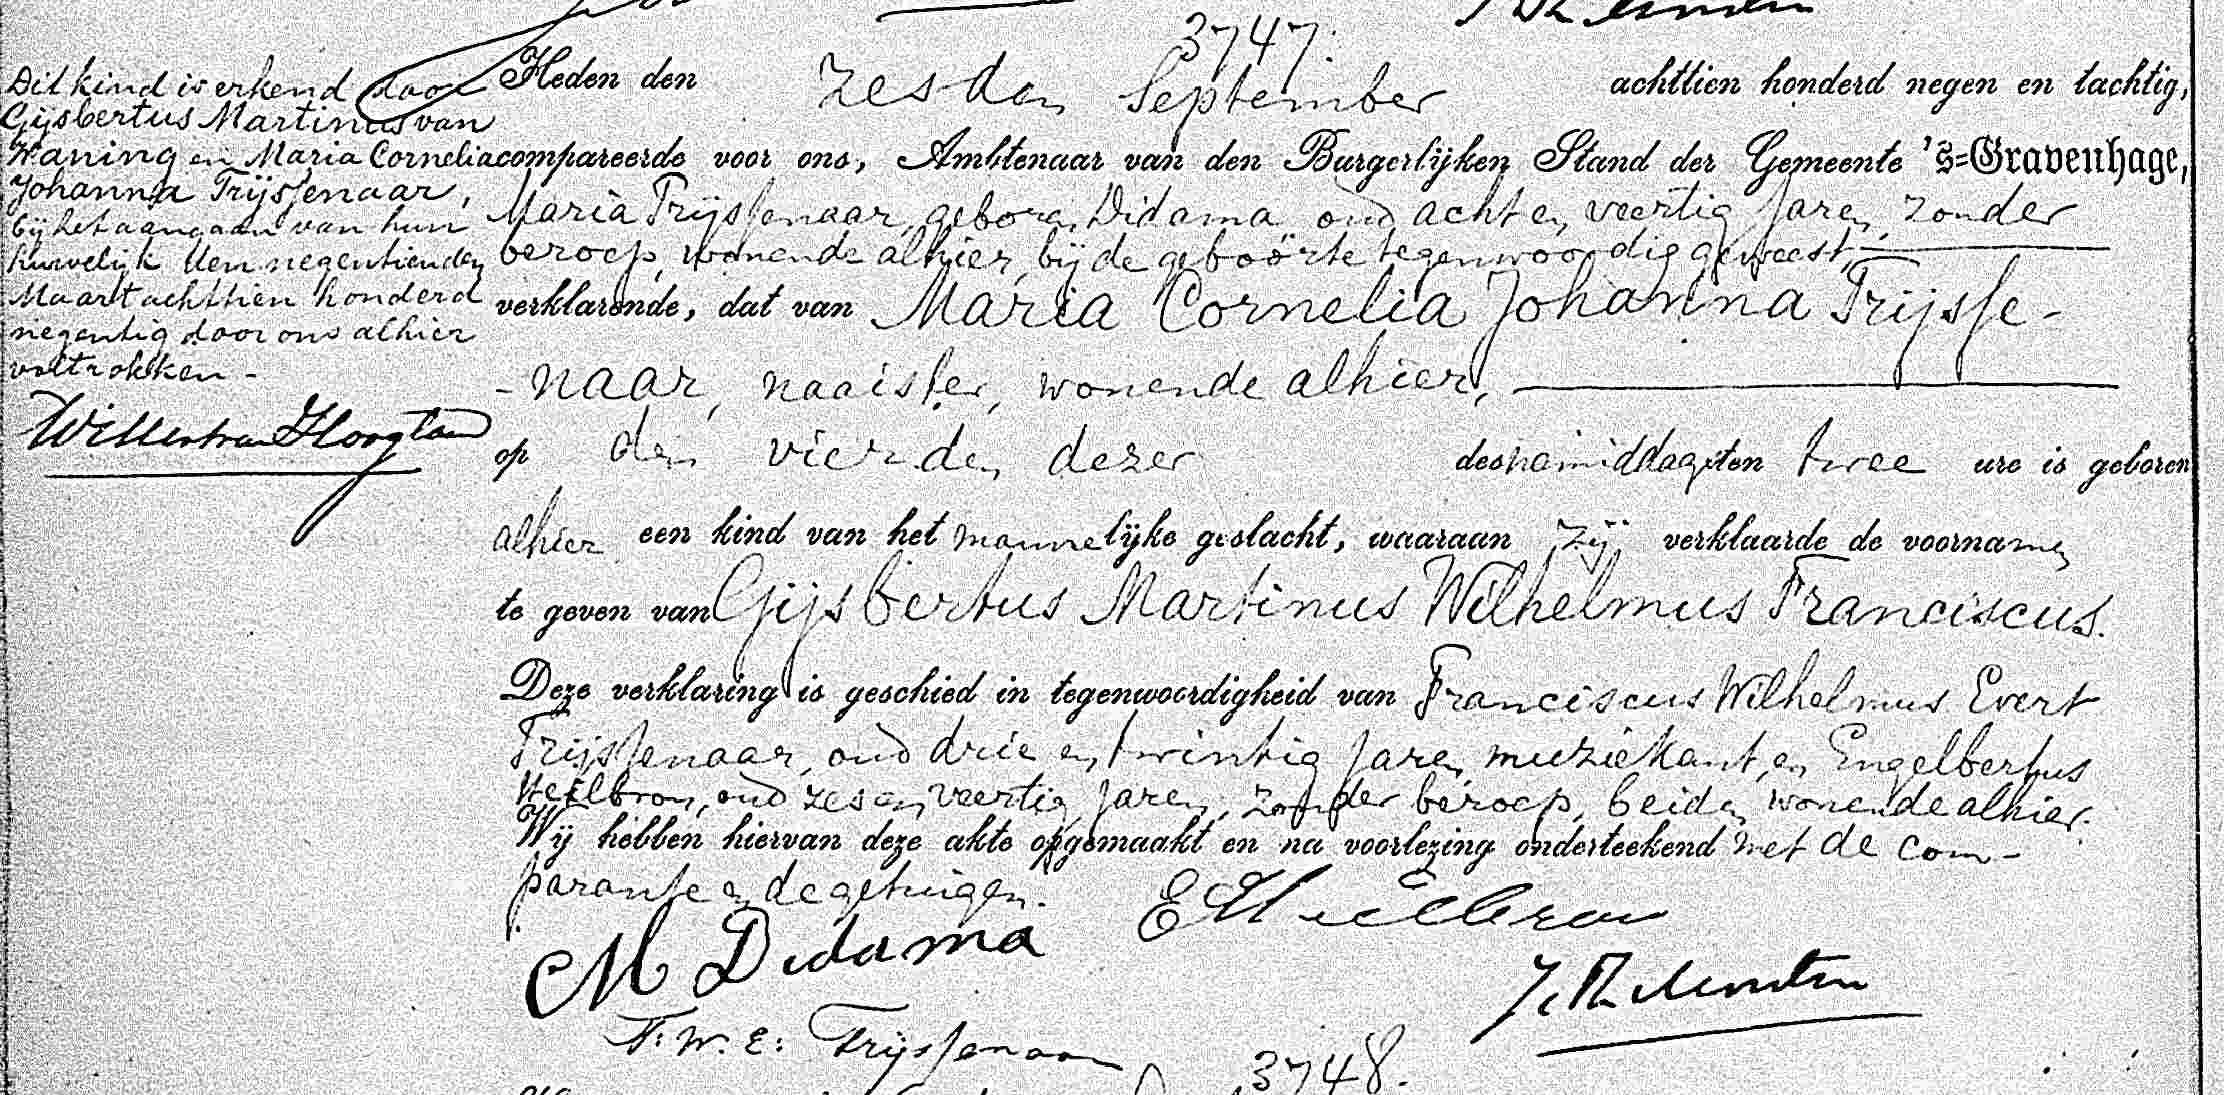 3747.
Dit kind is erkend door
Gijsbertus Martinus van
Waning en Maria Cornelia
Johanna Trijssenaar,
bij het aangaan van hun
huwelijk den negentienden
Maart achttien honderd
negentig door ons alhier
voltrokken -
Heden den zesden September achttien honderd negen en tachtig,
compareerde voor ons, Ambtenaar van den Burgerlijken Stand der Gemeente 's=Gravenhage,
Maria Trijssenaar, geboren Didama, oud acht en veertig jaren, zonder
beroep, wonende alhier, bij de geboorte tegenwoordig geweest,
verklarende, dat van Maria Cornelia Johanna Trijsse-
-naar, naaister, wonende alhier,
op den vierden dezer des namiddags ten twee ure is geboren
alhier een kind van het mannelijke geslacht, waaraan zij verklaarde de voornamen
te geven van Gijsbertus Martinus Wilhelmus Franciscus.
Deze verklaring is geschied in tegenwoordigheid van Franciscus Wilhelmus Evert
Trijssenaar, oud drie en twintig jaren, muziekant, en Engelbertus
Heilbron, oud zes en veertig jaren, zonder beroep, beiden wonende alhier.
Wij hebben hiervan deze akte opgemaakt en na voorlezing onderteekend met de com-
parante en de getuigen.
E Heilbron
M Didama
F. W. E. Trijssenaar
3748.